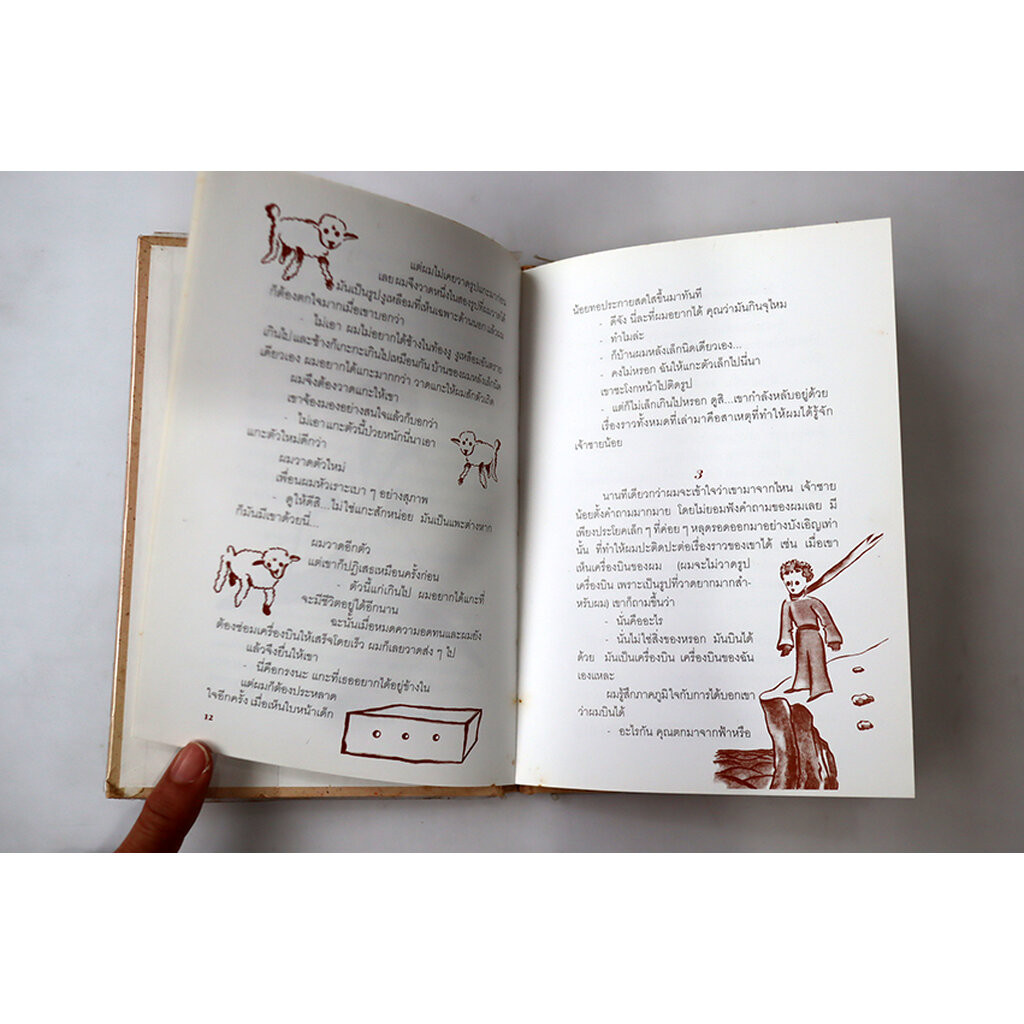 แต่ผมไม่เคยวาดรูปแกะมาก่อน
เลย ผมจึงวาดหนึ่งในสองรูปที่ผมวาดได้
มันเป็นรูปงูเหลือมที่เห็นเฉพาะด้านนอก แล้วผม
ก็ต้องตกใจมากเมื่อเขาบอกว่า
- ไม่เอา ผมไม่อยากได้ช้างในท้องงู งูเหลือมอันตราย
เกินไป และช้างก็เกะกะเกินไปเหมือนกัน บ้านของผมหลังเล็กนิด
เดียวเอง ผมอยากได้แกะมากกว่า วาดแกะให้ผมสักตัวเถิด
ผมจึงต้องวาดแกะให้เขา
เขาจ้องมองอย่างสนใจแล้วก็บอกว่า
- ไม่เอา แกะตัวนี้ป่วยหนักนี่นา เอา
แกะตัวใหม่ดีกว่า
ผมวาดตัวใหม่
เพื่อนผมหัวเราะเบา ๆ อย่างสุภาพ
- ดูให้ดีสิ...ไม่ใช่แกะสักหน่อย มันเป็นแพะต่างหาก
ก็มันมีเขาด้วยนี่...
ผมวาดอีกตัว
แต่เขาก็ปฏิเสธเหมือนครั้งก่อน
- ตัวนี้แก่เกินไป ผมอยากได้แกะที่
จะมีชีวิตอยู่ได้อีกนาน
ฉะนั้นเมื่อหมดความอดทนและผมยัง
ต้องซ่อมเครื่องบินให้เสร็จโดยเร็ว ผมก็เลยวาดส่ง ๆ ไป
แล้วจึงยื่นให้เขา
- นี่คือกรงนะ แกะที่เธออยากได้อยู่ข้างใน
แต่ผมก็ต้องประหลาด
ใจอีกครั้ง เมื่อเห็นใบหน้าเด็ก
12
น้อยทอประกายสดใสขึ้นมาทันที
- ดีจัง นี่ละที่ผมอยากได้ คุณว่ามันกินจุไหม
- ทำไมล่ะ
- ก็บ้านผมหลังเล็กนิดเดียวเอง...
- คงไม่หรอก ฉันให้แกะตัวเล็กไปนี่นา
เขาชะโงกหน้าไปติดรูป
- แต่ก็ไม่เล็กเกินไปหรอก ดูสิ...เขากำลังหลับอยู่ด้วย
เรื่องราวทั้งหมดที่เล่ามาคือสาเหตุที่ทำให้ผมได้รู้จัก
เจ้าชายน้อย
3
นานทีเดียวกว่าผมจะเข้าใจว่าเขามาจากไหน เจ้าชาย
น้อยตั้งคำถามมากมาย โดยไม่ยอมฟังคำถามของผมเลย มี
เพียงประโยคเล็ก ๆ ที่ค่อย ๆ หลุดรอดออกมาอย่างบังเอิญเท่า
นั้น ที่ทำให้ผมปะติดปะต่อเรื่องราวของเขาได้ เช่น เมื่อเขา
เห็นเครื่องบินของผม (ผมจะไม่วาดรูป
เครื่องบิน เพราะเป็นรูปที่วาดยากมากสำ-
หรับผม) เขาก็ถามขึ้นว่า
- นั่นคืออะไร
- นั่นไม่ใช่สิ่งของหรอก มันบินได้
ด้วย มันเป็นเครื่องบิน เครื่องบินของฉัน
เองแหละ
ผมรู้สึกภาคภูมิใจกับการได้บอกเขา
ว่าผมบินได้
- อะไรกัน คุณตกมาจากฟ้าหรือ